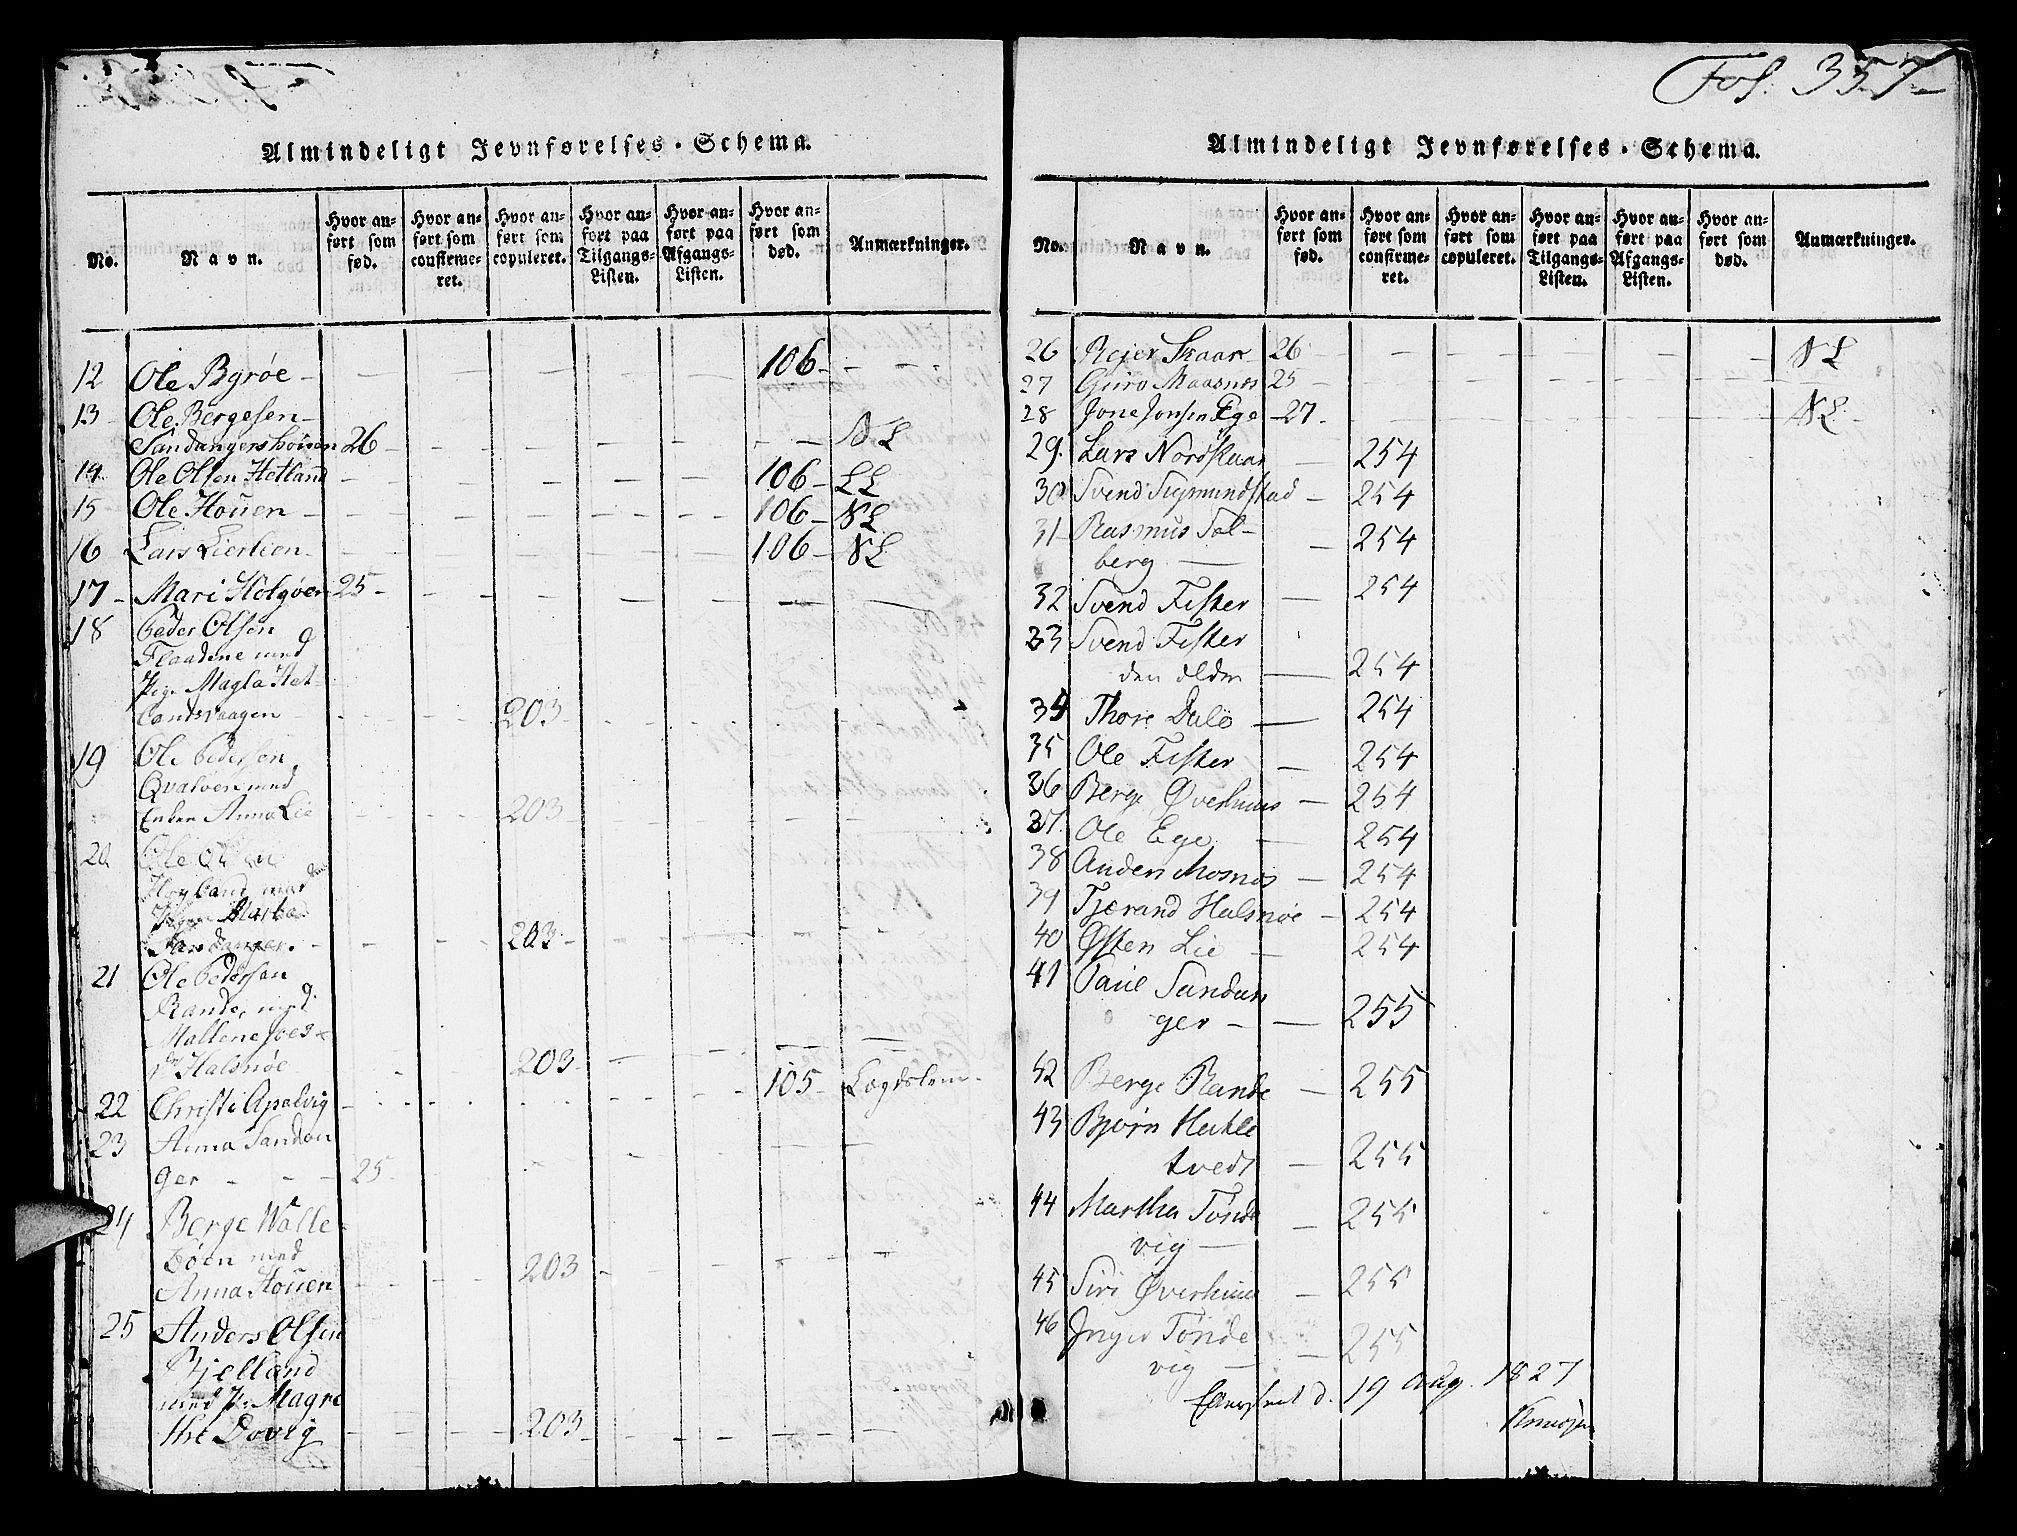 Fol. 357
Almindeligt Jevnførelses-Schema.
No.
Navn.
Hvor anført som fød.
Hvor anført som confirmeret.
Hvor anført som copuleret.
Hvor anført paa Tilgangs-Listen.
Hvor anført paa Afgangs-Listen.
Hvor anført som død.
Anmærkninger.
12 Ole Byrøe - 106 -
13 Ole Bergesen
Sandangersholmen 26 - N L
14 Ole Olsen Hetland - 106 - L L
15 Ole Houen - 106 - N L
16 Lars Lierlien - 106 - N L
17 - Mari Holgøen 25 -
18 Peder Olsen
Flaadene med
Pig. Magla Het-
landsvaagen 203
19 Ole Pedersen
Qvaløen med
Enken Anna Lie 203
20 Ole Olsen
Høyland med
Pigen Martha
Sandanger. 203
21 Ole Pedersen
Rande, med
Mallene
Halsnøe 203
22 Christi Apalvig 105 - Lægdslem
23 Anna Sandan
ger - - - 25 -
24 Berge Walle-
bøen med
Anna Houen 203
25 Anders Olsen
Bjelland
med P. Magre
the Dovig 203
Almindeligt Jevnførelses-Schema.
No.
Navn.
Hvor anført som fød.
Hvor anført som confirmeret.
Hvor anført som copuleret.
Hvor anført paa Tilgangs-Listen.
Hvor anført paa Afgangs-Listen.
Hvor anført som død.
Anmærkninger.
26 Rejer Skaar 26 - N L
27 Guro Maasnæs 25 -
28 Jone Jonsen Ege 27 - N L
29. Lars Nordskaar - 254
30 Svend Sigmundstad - 254
31 Rasmus Sol-
berg - 254
32 Svend Fister - 254
33 Svend Fister
den ældre - 254
34 Thore Dale - 254
35 Ole Fister - 254
36 Berge Øverhuus - 254
37 Ole Ege - 254
38 Anders Mosnøs - 254
39 Tjerand Halsnøe - 254
40 Østen Lie - 254
41 Paul Sandan
ger - 255
42 Berge Rande - 255
43 Bjørn Hechle
tvedt - 255
44 Martha Tønde
vig - 255
45 Siri Øverhuus - 255
46 Inger Tønde
vig - 255
d. 19 Aug. 1827